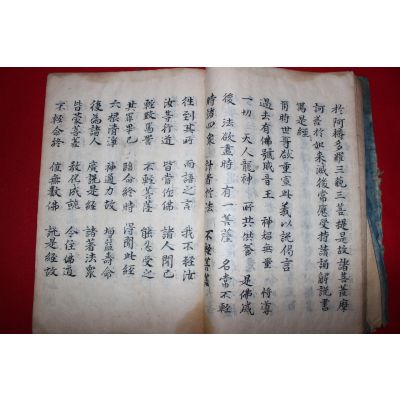 於阿耨多羅三藐三菩提是故諸菩薩摩
訶薩於如來滅後常應受持讀誦解說書
寫是經
爾時世尊欲重宣此義以說偈言
過去有佛 號威音王 神智無量 將導
一切 天人龍神 所共供養 是佛滅
後 法欲盡時 有一菩薩 名常不輕
時諸四衆 計著於法 不輕菩薩
往到其所 而語之言 我不輕汝
汝等行道 皆當作佛 諸人聞已
輕毀罵詈 不輕菩薩 能忍受之
其罪畢已 臨命終時 得聞此經
六根清淨 神通力故 增益壽命
復爲諸人 廣說是經 諸著法衆
皆蒙菩薩 教化成就 令住佛道
不輕命終 值無數佛 說是經故